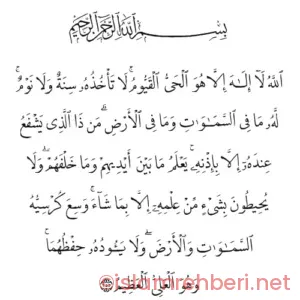 بِسْمِ اللّٰهِ الرَّحْمٰنِ الرَّحِيمِ
اَللّٰهُ لَٓا اِلٰهَ اِلَّا هُوَ الْحَىُّ الْقَيُّومُ لَا تَاْخُذُهُ سِنَةٌ وَلَا نَوْمٌ
لَهُ مَا فِى السَّمٰوَاتِ وَمَا فِى الْاَرْضِ مَنْ ذَا الَّذِى يَشْفَعُ
عِنْدَهُ اِلَّا بِاِذْنِهِ يَعْلَمُ مَا بَيْنَ اَيْدِيهِمْ وَمَا خَلْفَهُمْ وَلَا
يُحِيطُونَ بِشَىْءٍ مِنْ عِلْمِهِ اِلَّا بِمَا شَٓاءَ وَسِعَ كُرْسِيُّهُ
السَّمٰوَاتِ وَالْاَرْضَ وَلَا يَؤُدُهُ حِفْظُهُمَا
وَهُوَ الْعَلِىُّ الْعَظِيمُ
@islamrehberi.net